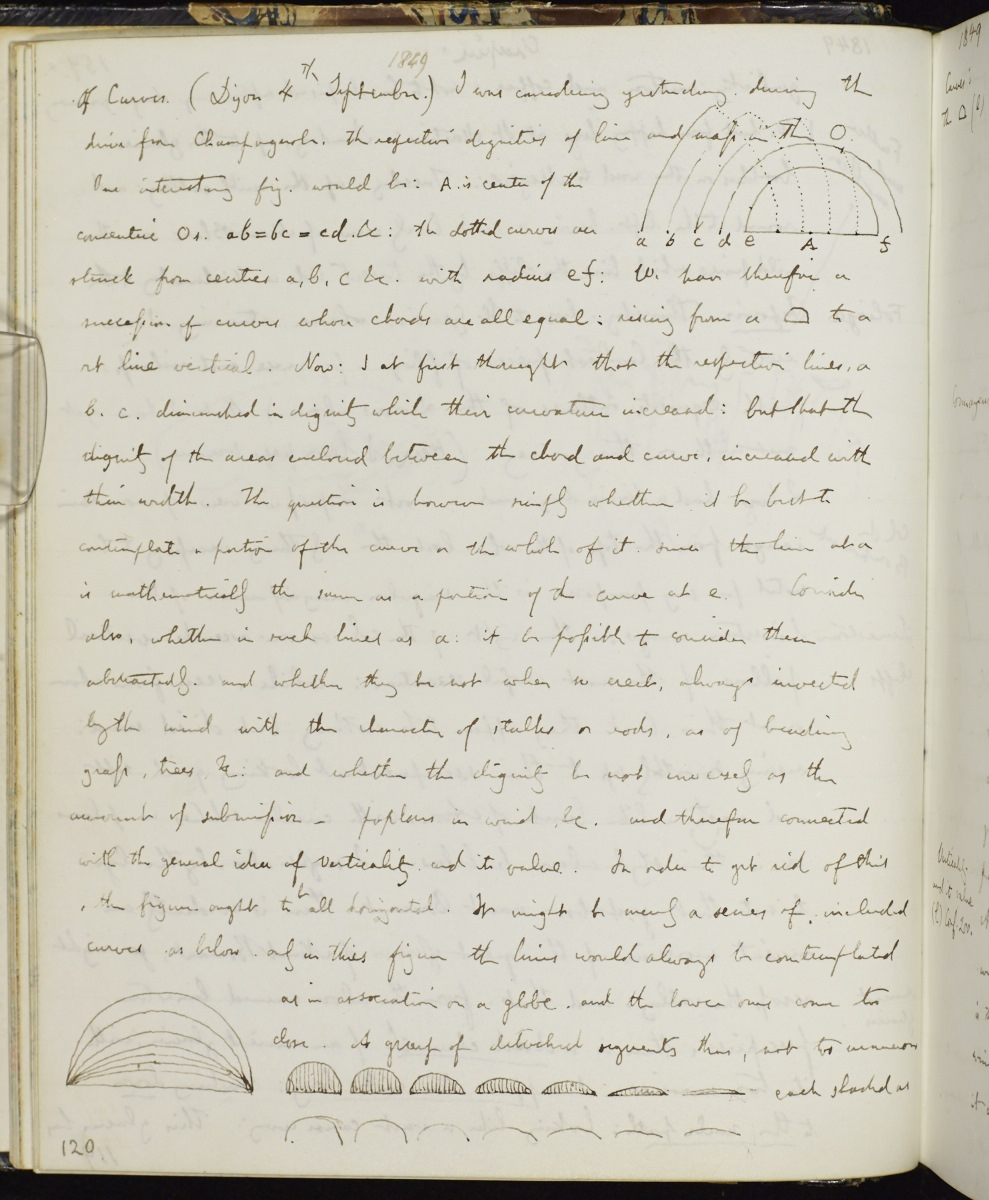 1849
Of Curves. (Dijon 4th September.) I was considering yesterday. during the
drive from Champagnole. the respective dignities of line and mass in the O.
One interesting fig. would be: A. is center of the
concentric Os. ab=bc=cd.&c: the dotted curves are
a b c d e A f
struck from centres a, b, c &c. with radius ef: We have therefore a
succession of curves whose chords are all equal: rising from a ⌓ to a
rt line vertical. Now: I at first thought that the respective lines, a
b. c. diminished in dignity while their curvature increased: but that the
dignity of the areas enclosed between the chord and curve, increased with
their width. The question is however simply whether it be best to
contemplate a portion of the curve or the whole of it. since the line at a
is mathematically the same as a portion of the curve at e. Consider
also, whether in such lines as a: it be possible to consider them
abstractedly. and whether they be not when so erect, always invested
by the mind with the character of stalks or rods, as of bending
grass, trees, &c: and whether the dignity be not inversely as the
amount of submission - poplars in wind &c. and therefore connected
with the general idea of verticality and its value. In order to get rid of this
, the figures ought to be all horizontal. It might be merely a series of included
curves as below. only in this figure the lines would always be contemplated
as in association or a globe. and the lower ones come too
close. A group of detached segments thus, not too numerous
each shaded as
120
1849
Curves:
the ⌓
Verticality.
and its value